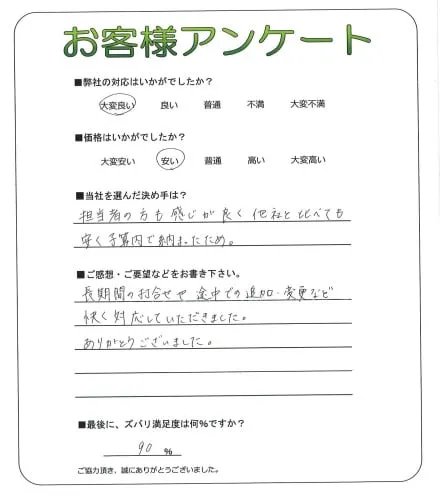 お客様アンケート
■弊社の対応はいかがでしたか？
大変良い 良い 普通 不満 大変不満
■価格はいかがでしたか？
大変安い 安い 普通 高い 大変高い
■当社を選んだ決め手は？
担当者の方も感じが良く他社と比べても
安く予算内で納まったため。
■ご感想・ご要望などをお書き下さい。
長期間の打合せや途中での追加・変更など
快く対応していただきました。
ありがとうございました。
■最後に、ズバリ満足度は何％ですか？
90 ％
ご協力頂き、誠にありがとうございました。